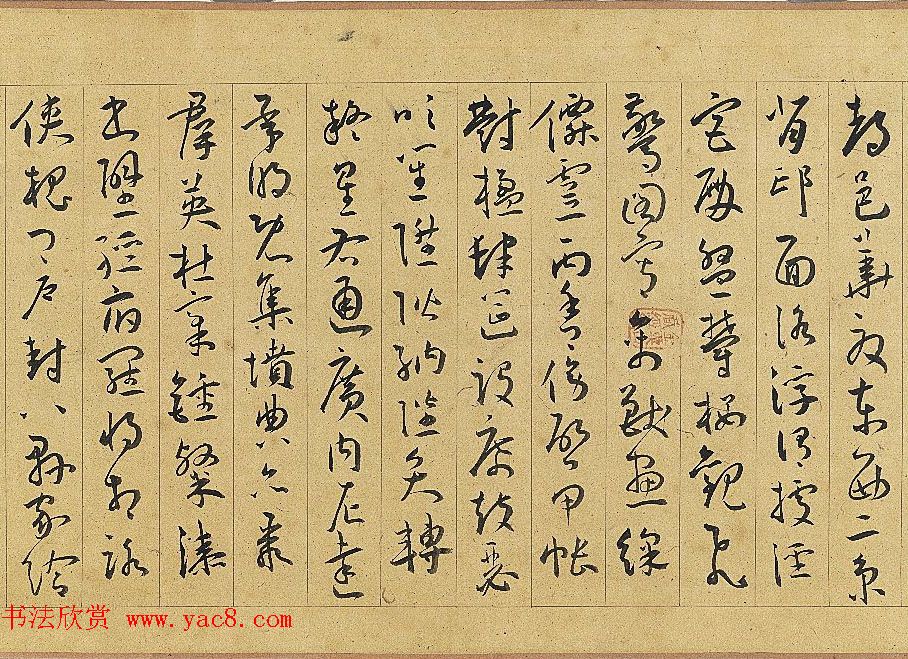 都邑華夏東西二京
背邙面洛浮渭據涇
宮殿盤鬱樓觀飛
驚圖寫禽獸畫綵
僊靈丙舍傍啓甲帳
對楹肆筵設席鼓瑟
吹笙陞階納陛弁轉
疑星右通廣內左達
承明既集墳典亦聚
羣英杜稾鍾隸漆
書壁經府羅將相路
俠槐卿戶封八縣家給
书法欣赏 www.yac8.com